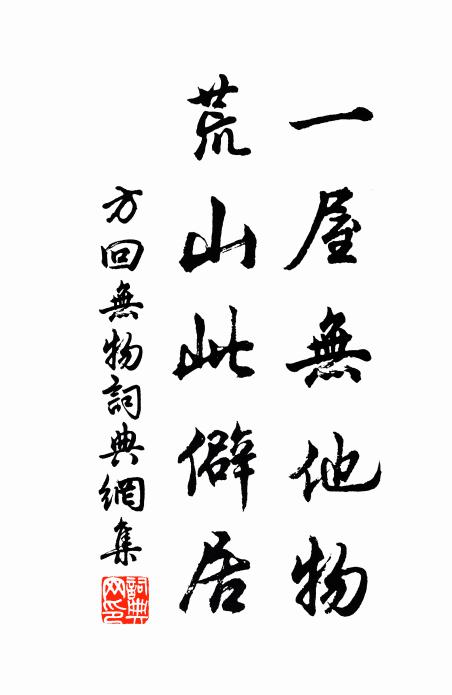 一屋無他物
荒山此僻居
方回無物詞典網集
詞典網印